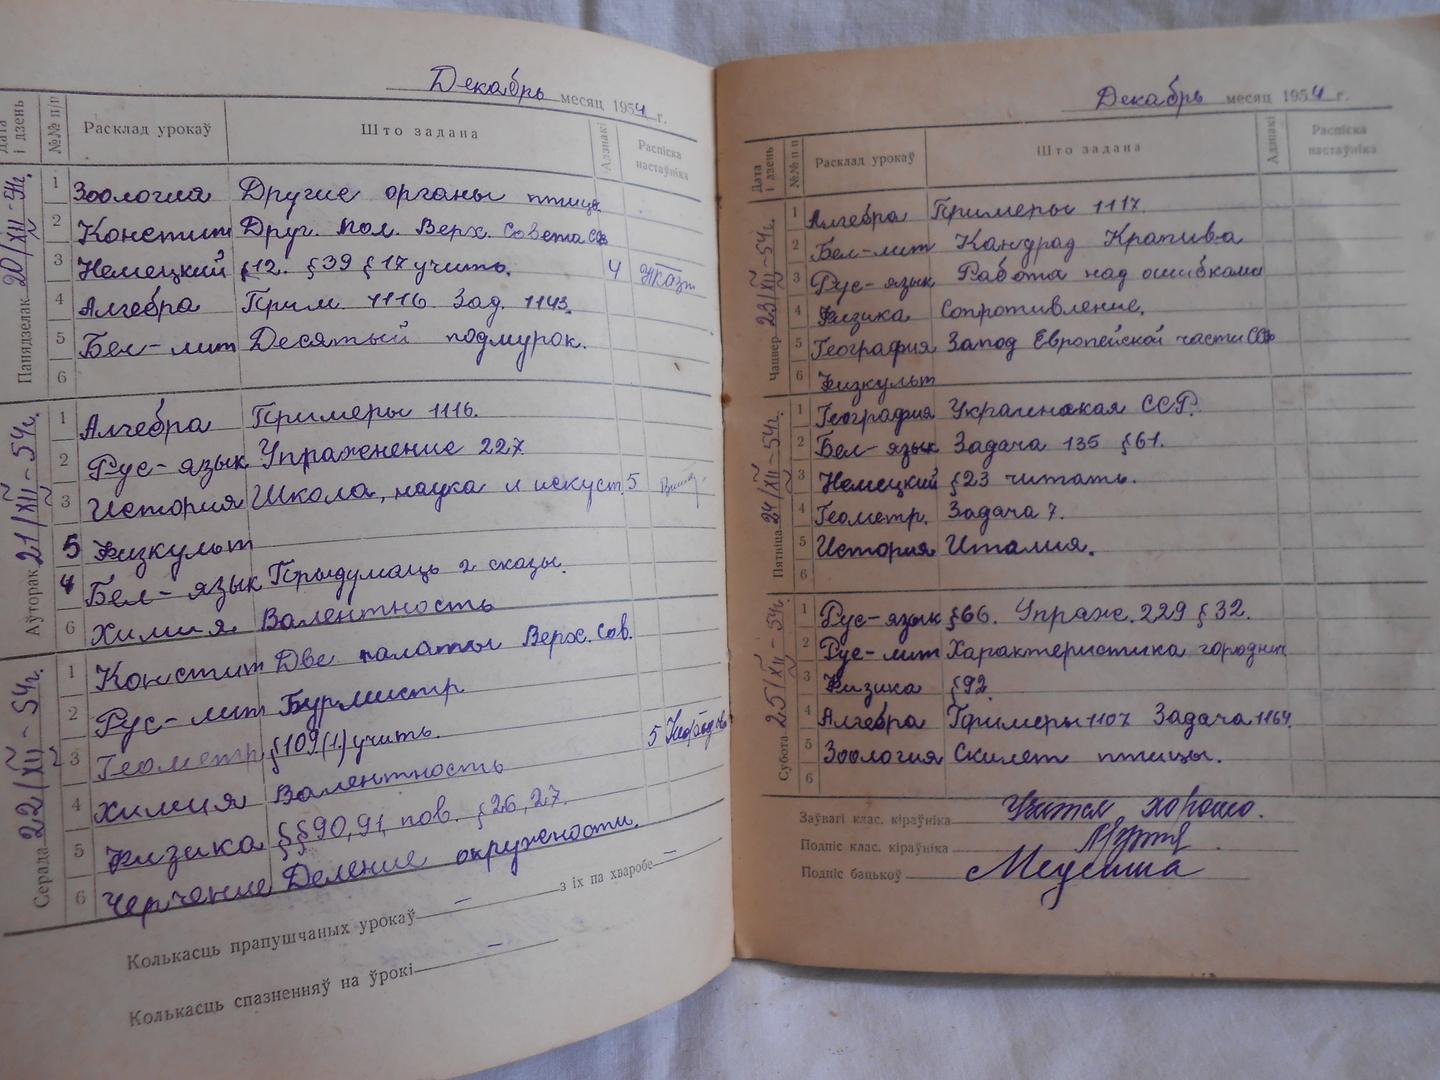 Декабрь месяц 1954 г.
Дата і дзень №№ п/п Расклад урокаў Што задана Адзнакі Распіска настаўніка
Панядзелак 20/XII-54г.
1 Зоология Другие органы птицы
2 Констит Друг. пол. Верх. Совета ССР
3 Немецкий §12. §39 §17 учить. 4
4 Алгебра Прим. 1116. Зад. 1143.
5 Бел-лит Десятый подмурок.
6
Аўторак 21/XII-54г.
1 Алгебра Примеры 1116.
2 Рус-язык Упражнение 227
3 История Школа, наука и искуст. 5
5 Физкульт
4 Бел-язык Прыдумаць 2 сказы.
6 Химия Валентность
Серада 22/XII-54г.
1 Констит Две палаты Верх. Сов.
2 Рус-лит Бурмистр
3 Геометр. §109(1) учить. 5
4 Химия Валентность
5 Физика §§90,91, пов. §26,27.
6 Черчение Деление окружности.
Колькасць прапушчаных урокаў – з іх па хваробе –
Колькасць спазненняў на ўрокі –
Декабрь месяц 1954 г.
Дата і дзень №№ п/п Расклад урокаў Што задана Адзнакі Распіска настаўніка
Чацвер 23/XII-54г.
1 Алгебра Примеры 1117.
2 Бел-лит Кандрад Крапива
3 Рус-язык Работа над ошибками
4 Физика Сопротивление.
5 География Запод Европейской части ССР
6 Физкульт
Пятніца 24/XII-54г.
1 География Украинская ССР.
2 Бел-язык Задача 135 §61.
3 Немецкий §23 читать.
4 Геометр. Задача 7.
5 История Италия.
6
Субота 25/XII-54г.
1 Рус-язык §66. Упраж. 229 §32.
2 Рус-лит Характеристика городнич
3 Физика §92.
4 Алгебра Примеры 1107 Задача 1164.
5 Зоология Скилет птицы.
6
Заўвагі клас. кіраўніка Учится хорошо.
Подпіс клас. кіраўніка
Подпіс бацькоў